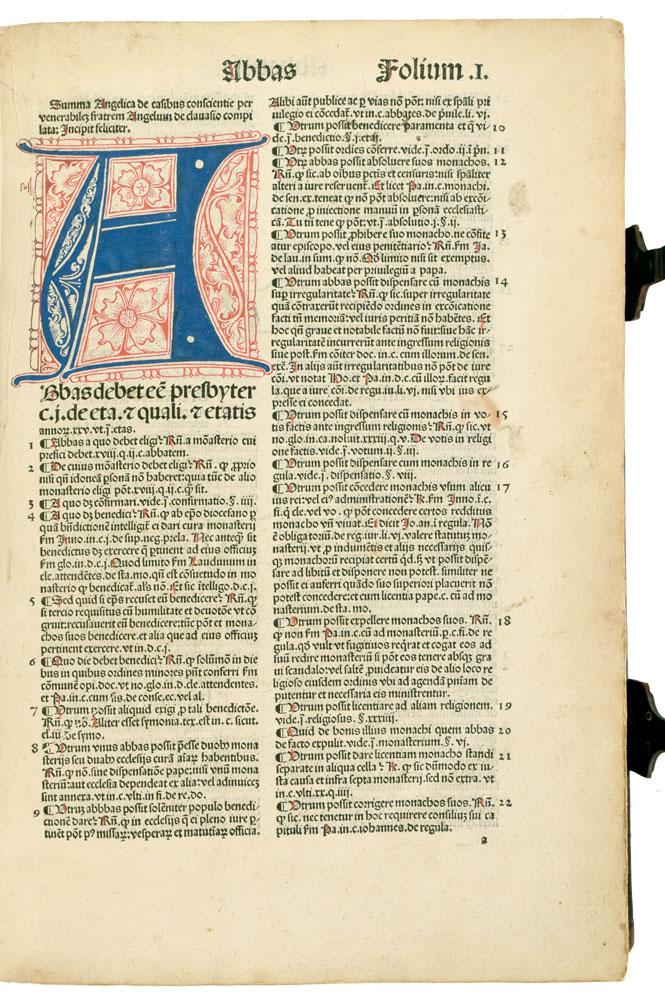 Abbas Folium .I.
Summa Angelica de casibus conscientie per
venerabilem fratrem Angelum de clauasio compi
lata: Incipit feliciter.
A
Bbas debet eē presbyter
c.j. de eta. ⁊ quali. ⁊ etatis
annoꝝ. xxv. vt. j. etas.
1 ¶ Abbas a quo debet eligi? Rñ. a mōasterio cui
prefici debet. xviij. q. ij. c. abbatem.
2 ¶ De cuius mōasterio debet eligi? Rñ. ꝙ ꝓprio
nisi qñ idonea ꝑsonā nō haberet: quia tūc de alio
monasterio eligi pōt. xviij. q. ij. c. ꝙ sit.
3 ¶ A quo dꝫ cōfirmari. vide. j. confirmatio. §. iiij.
4 ¶ A quo dꝫ benedici? Rñ. ꝙ ab epō diocesano ꝑ
quā bn̄dictionē intelligit̄ ei dari cura monasterij
ẜm Inno. in c. j. de sup. neg. p̄ela. Nec anteꝙ̄ sit
benedictus dꝫ exercere ꝙ ꝑtinent ad eius officiuꝫ
ẜm glo. in d. c. j. Quod limito ẜm Laudunum in
cle. attendētes. de sta. mo. qn̄ est cōsuetudo in mo
nasterio ꝙ benedicat̄. als̄ nō. Et sic ītelligo. d. c. j.
5 ¶ Sed quid si ep̄s recuset eū benedicere? Rñ. ꝙ
si tercio requisitus cū humilitate et deuotōe vt cō
gruit: recusauerit eū benedicere: tūc pōt et mona-
chos suos benedicere. et alia que ad eius officiuꝫ
pertinent exercere. vt in. d. c. j.
6 ¶ Quo die debet benedici? Rñ. ꝙ solūmō in die
bus in quibus ordines minores pn̄t conferri ẜm
cōmunē opi. doc. vt no. glo. in d. cle. attendentes.
et Pa. in c. cum sis. de conse. ec. vel al.
7 ¶ Vtrum possit aliquid exigi ꝓ tali benedictōe.
Rñ. ꝙ nō. Aliter esset symonia. tex. est in c. sicut.
el. iij. de symo.
8 ¶ Vtrum vnus abbas possit p̄esse duobꝰ mona
sterijs seu duabꝰ ecclesijs curā aīaꝝ habentibus.
Rñ. ꝙ nō. sine dispensatiōe pape: nisi vnū mona
steriū: aut ecclesia dependeat ex alia: vel adinuicē
sint annexa. vt in c. vlti. in fi. de re. do.
9 ¶ Vtrꝫ abbas possit solēniter populo benedi-
ctionē dare? Rñ. ꝙ in ecclesijs ꝙ ei pleno iure ꝑ-
tinēt pōt pꝰ missaꝝ: vesperaꝝ et matutiaꝝ officia.
Alibi aūt publice ac ꝑ vias nō pōt: nisi ex sp̄ali pri
uilegio ei cōcedat̄. vt in c. abbates. de p̄uile. li. vj.
¶ Vtrum possit benedicere paramenta et ꝙ vi- 10
de. j. benedictio. §. j. et. ij.
¶ Vtꝝ possit ordīes cōferre. vide. j. ordo. ij. ī pn̄. 11
¶ Vtꝝ abbas possit absoluere suos monachos. 12
Rñ. ꝙ sic. ab oībus pctīs et cēsuris: nisi sp̄aliter
alteri a iure reseruent̄. Et licet Pa. in c. monachi.
de sen. ex. teneat ꝙ nō pōt absoluere: nisi ab excōi-
catione ꝓ iniectione manuū in ꝑsonā ecclesiasti-
cā. Tu tn̄ tene ꝙ pōt: vt. j. absolutio. j. §. ij.
¶ Vtrum possit ꝓhibere suo monacho. ne cōfite 13
atur episcopo. vel eius penitētiario? Rñ. ẜm Ja.
de lau. in sum. ꝙ nō. Qd̄ limito nisi sit exemptus.
vel aliud habeat per priuilegiū a papa.
¶ Vtrum abbas possit dispensare cū monachis 14
suꝑ irregularitate? Rñ. ꝙ sic. super irregularitate
quā cōtraxerūt recipiēdo ordines in excōicatione
facti tn̄ memoriā: vel iuris peritiā nō habētes. Et
hoc qn̄ graue et notabile factū nō fuit: siue hāc ir-
regularitatē incurrerūt ante ingressum religionis
siue post. ẜm cōiter doc. in. c. cum illorum. de sen.
exē. In alijs aūt irregularitatibus nō pōt de iure
cōi. vt notat Ho. et Pa. in d. c. cū illoꝝ. facit regu
la. que a iure cōi. de regu. iu. li. vj. nisi vbi ius ex-
presse ei concedat.
¶ Vtrum possit dispensare cū monachis in vo- 15
tis factis ante ingressum religionis? Rñ. ꝙ sic. vt
no. glo. in c. noluit. xxxiij. q. v. De votis in religi
one factis. vide. j. votum. ij. §. iij.
¶ Vtrum possit dispensare cum monachis in re 16
gula. vide. j. dispensatio. §. viij.
¶ Vtrum possit cōcedere monachis vsum alicu 17
ius rei: vel ei administrationē? R. ẜm Inno. ī. c.
fi. q̄ cle. vel vo. ꝙ pōt concedere certos redditus
monacho vn̄ viuat. Et dicit Jo. an. ī regula. Nō
ē obligatoriū. de reg. iur. li. vj. valere statutuꝫ mo-
nasterij. vt ꝓ indumētis et alijs necessarijs quis-
ꝙ monachoꝝ recipiat certū qd̄. sꝫ vt possit dispē-
sare ad libitū et disponere non potest. similiter ne
possit ei auferri quādo suo superiori placuerit nō
potest concedere: et cum licentia pape. c. cū ad mo
nasterium. de sta. mo.
¶ Vtrum possit expellere monachos suos. Rñ. 18
ꝙ non ẜm Pa. in c. cū ad monasteriū. ꝑ c. fi. de re-
gula. qd̄ vult vt fugitiuos reqͥrat et cogat eos ad
suū redire monasteriū si pōt eos tenere absqꝫ gra
ui scandalo: vel saltē ꝓuideatur eis de alio loco re
ligioso eiusdem ordinis vbi ad agendā pn̄iam de
putentur et necessaria eis ministrentur.
¶ Vtrum possit licentiare ad aliam religionem. 19
vide. j. religiosus. §. xxxiij.
¶ Quid de bonis illius monachi quem abbas 20
de facto expulit. vide. j. monasterium. §. vj.
¶ Vtrum possit dare licentiam monacho standi 21
separate in aliqua cella? R. ꝙ sic dūmodo ex iu-
sta causa et infra septa monasterij. sed nō extra. vt
in c. vlti. xx. q. iiij.
¶ Vtrum possit corrigere monachos suos. Rñ. 22
ꝙ sic. nec tenetur in hoc requirere consiliuꝫ sui ca
pituli ẜm Pa. in c. iohannes. de regula.
a